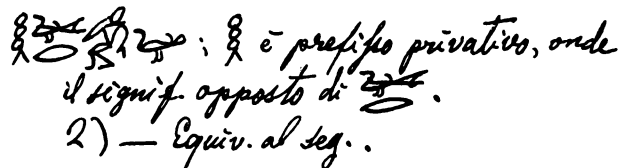 ; è prefisso privativo, onde
il signif. opposto di .
2) — Equiv. al seg. .